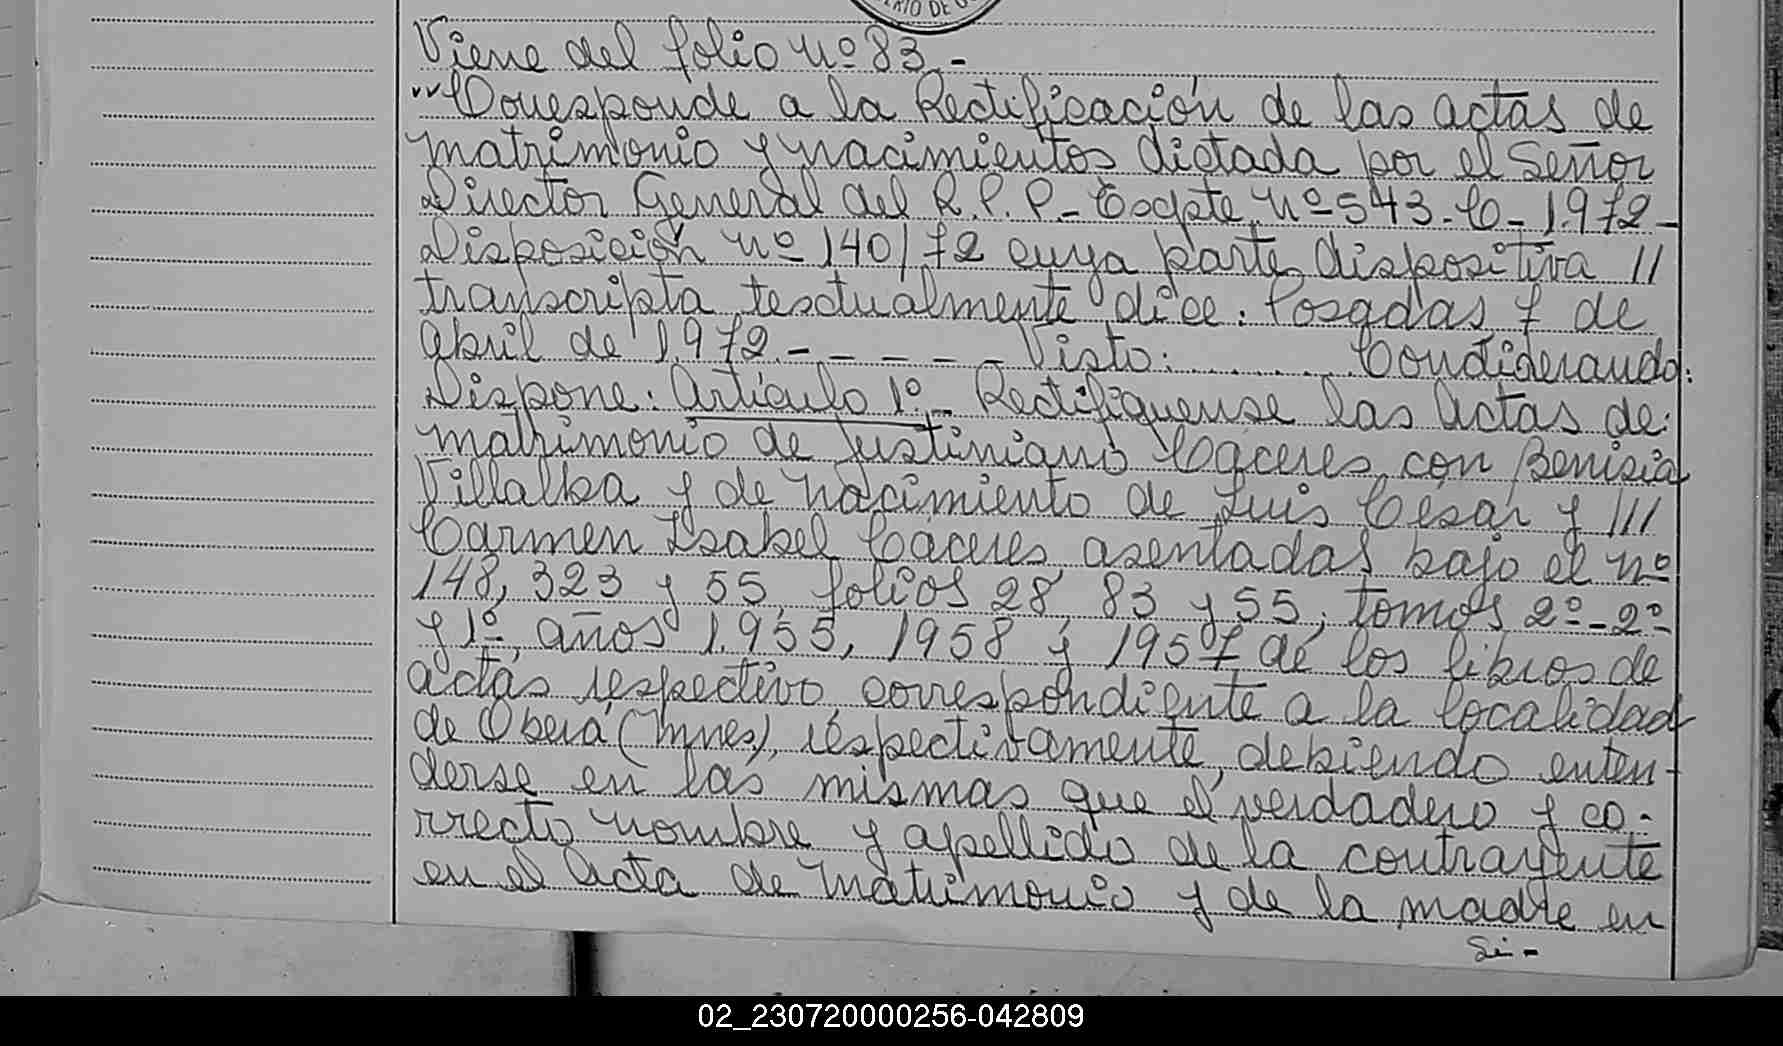 Viene del folio Nº 83.-
"Corresponde a la Rectificación de las actas de
matrimonio y nacimientos dictada por el Señor
Director General del R.P.P. - Expte. Nº 543-C-1.972-
Disposición Nº 140/72 cuya parte dispositiva //
transcripta textualmente dice: Posadas, 7 de
abril de 1.972.- - - - - - Visto: ........ Condiderando:
Dispone: Artículo 1º.- Rectifiquense las actas de:
matrimonio de Justiniano Cáceres con Benicia
Villalba y de nacimiento de Luis César y ///
Carmen Isabel Cáceres, asentadas bajo el Nº
148, 323 y 55, folios 28, 83 y 55, tomos 2º-2º
y 1º, años 1.955, 1958 y 1957 de los libros de
actas respectivo, correspondiente a la localidad
de Oberá (Mnes), respectivamente, debiendo enten-
derse en las mismas que el verdadero y co-
rrecto nombre y apellido de la contrayente
en el acta de matrimonio y de la madre en
02_230720000256-042809